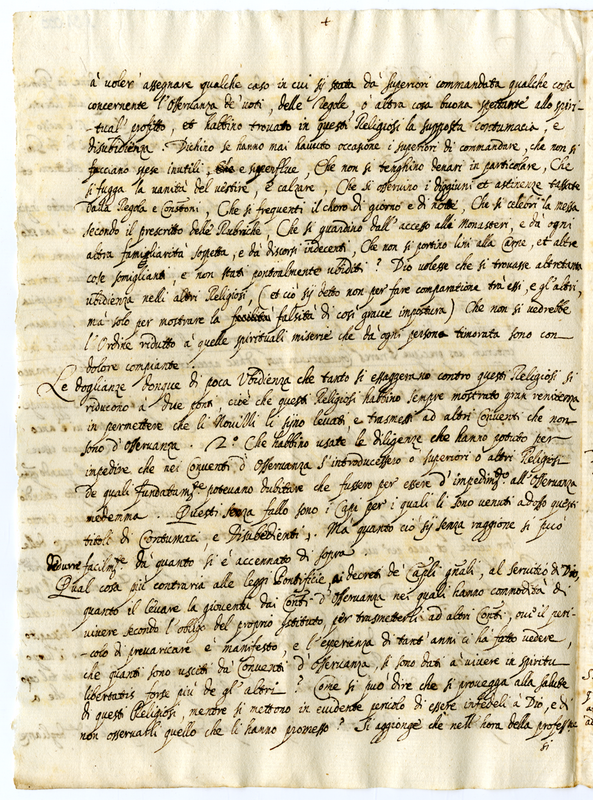 +
à voler assegnare qualche caso in cui si stata da Superiori commandata qualche cosa
concernente l'Osservanza de' voti, delle Regole, o altra cosa buona spettante allo spiri-
tual' profitto, et habbino trovato in questi Religiosi la supposta contumacia, e
disubidienza. Dichino se hanno mai havuto occasione i superiori di commandare, che non si
facciano spese inutili, Che e superflue, Che non si tenghino denari in particolare, Che
si fugga la vanità del vestire, e calzare, Che si osservino i diggiuni et astinenze tassate
dalla Regola e Constoni, Che si frequenti il choro di giorno e di notte, Che si celebri la messa
secondo il prescritto delle Rubriche, Che si guardino dall'accesso alli Monasteri, e da ogni
altra famigliarità sospetta, e da discorsi indecenti, Che non si portino lini alla Carne, et altre
cose somiglianti, e non stati pontualmente ubiditi? Dio volesse che si trovasse altretanta
ubidienza nelli altri Religiosi, (et ciò sij detto non per fare comparatione tra essi, e gl'altri,
mà solo per mostrare la falsità di così grave impostura) Che non si vedrebbe
l'Ordine ridutto à quelle spirituali miserie che da ogni persona timorata sono con
dolore compiante.
Le doglianze donque di poca Ubidienza che tanto si essaggerano contro questi Religiosi si
riducono à due ponti, cioè che questi Religiosi habbino sempre mostrato gran renitenza
in permettere che li Novilli li sijno levati e trasmessi ad altri Conventi che non
sono d'Osservanza. 2.° Che habbino usate le diligenze che hanno potuto per
impedire che nei Conventi d'Osservanza s'introducessero o superiori o altri Religiosi
De quali fundatamte potevano dubitare che fussero per essere d'impedimto all'Osservanza
medemma. Questi senza fallo sono i Capi per i quali li sono venuti adosso questi
titoli di Contumaci, e Disubedienti. Ma quanto ciò sij senza raggione si può
dedurre facilmte da quanto si è accennato di sopra
Qual cosa più contraria alle leggi Pontificie, ai decreti de' Capli gñali, al servitio di Dio,
quanto il levare la gioventù dai Conti d'Osservanza nei quali hanno commodità di
vivere secondo l'obligo del proprio Istituto, per trasmetterli ad altri Conti, ov'è il peri-
colo di prevaricare è manifesto, e l'esperienza di tant'anni ci hà fatto vedere,
che quanti sono usciti da Conventi d'Osservanza, si sono dati à vivere in spiritu
libertatis forse più de gl'altri? Come si può dire che si provegga alla salute
di questi Religiosi, mentre si mettono in evidente pericolo di essere infedeli à Dio, e di
non osservarli quello che li hanno promesso? Si aggionge che nell'hora della professne
si